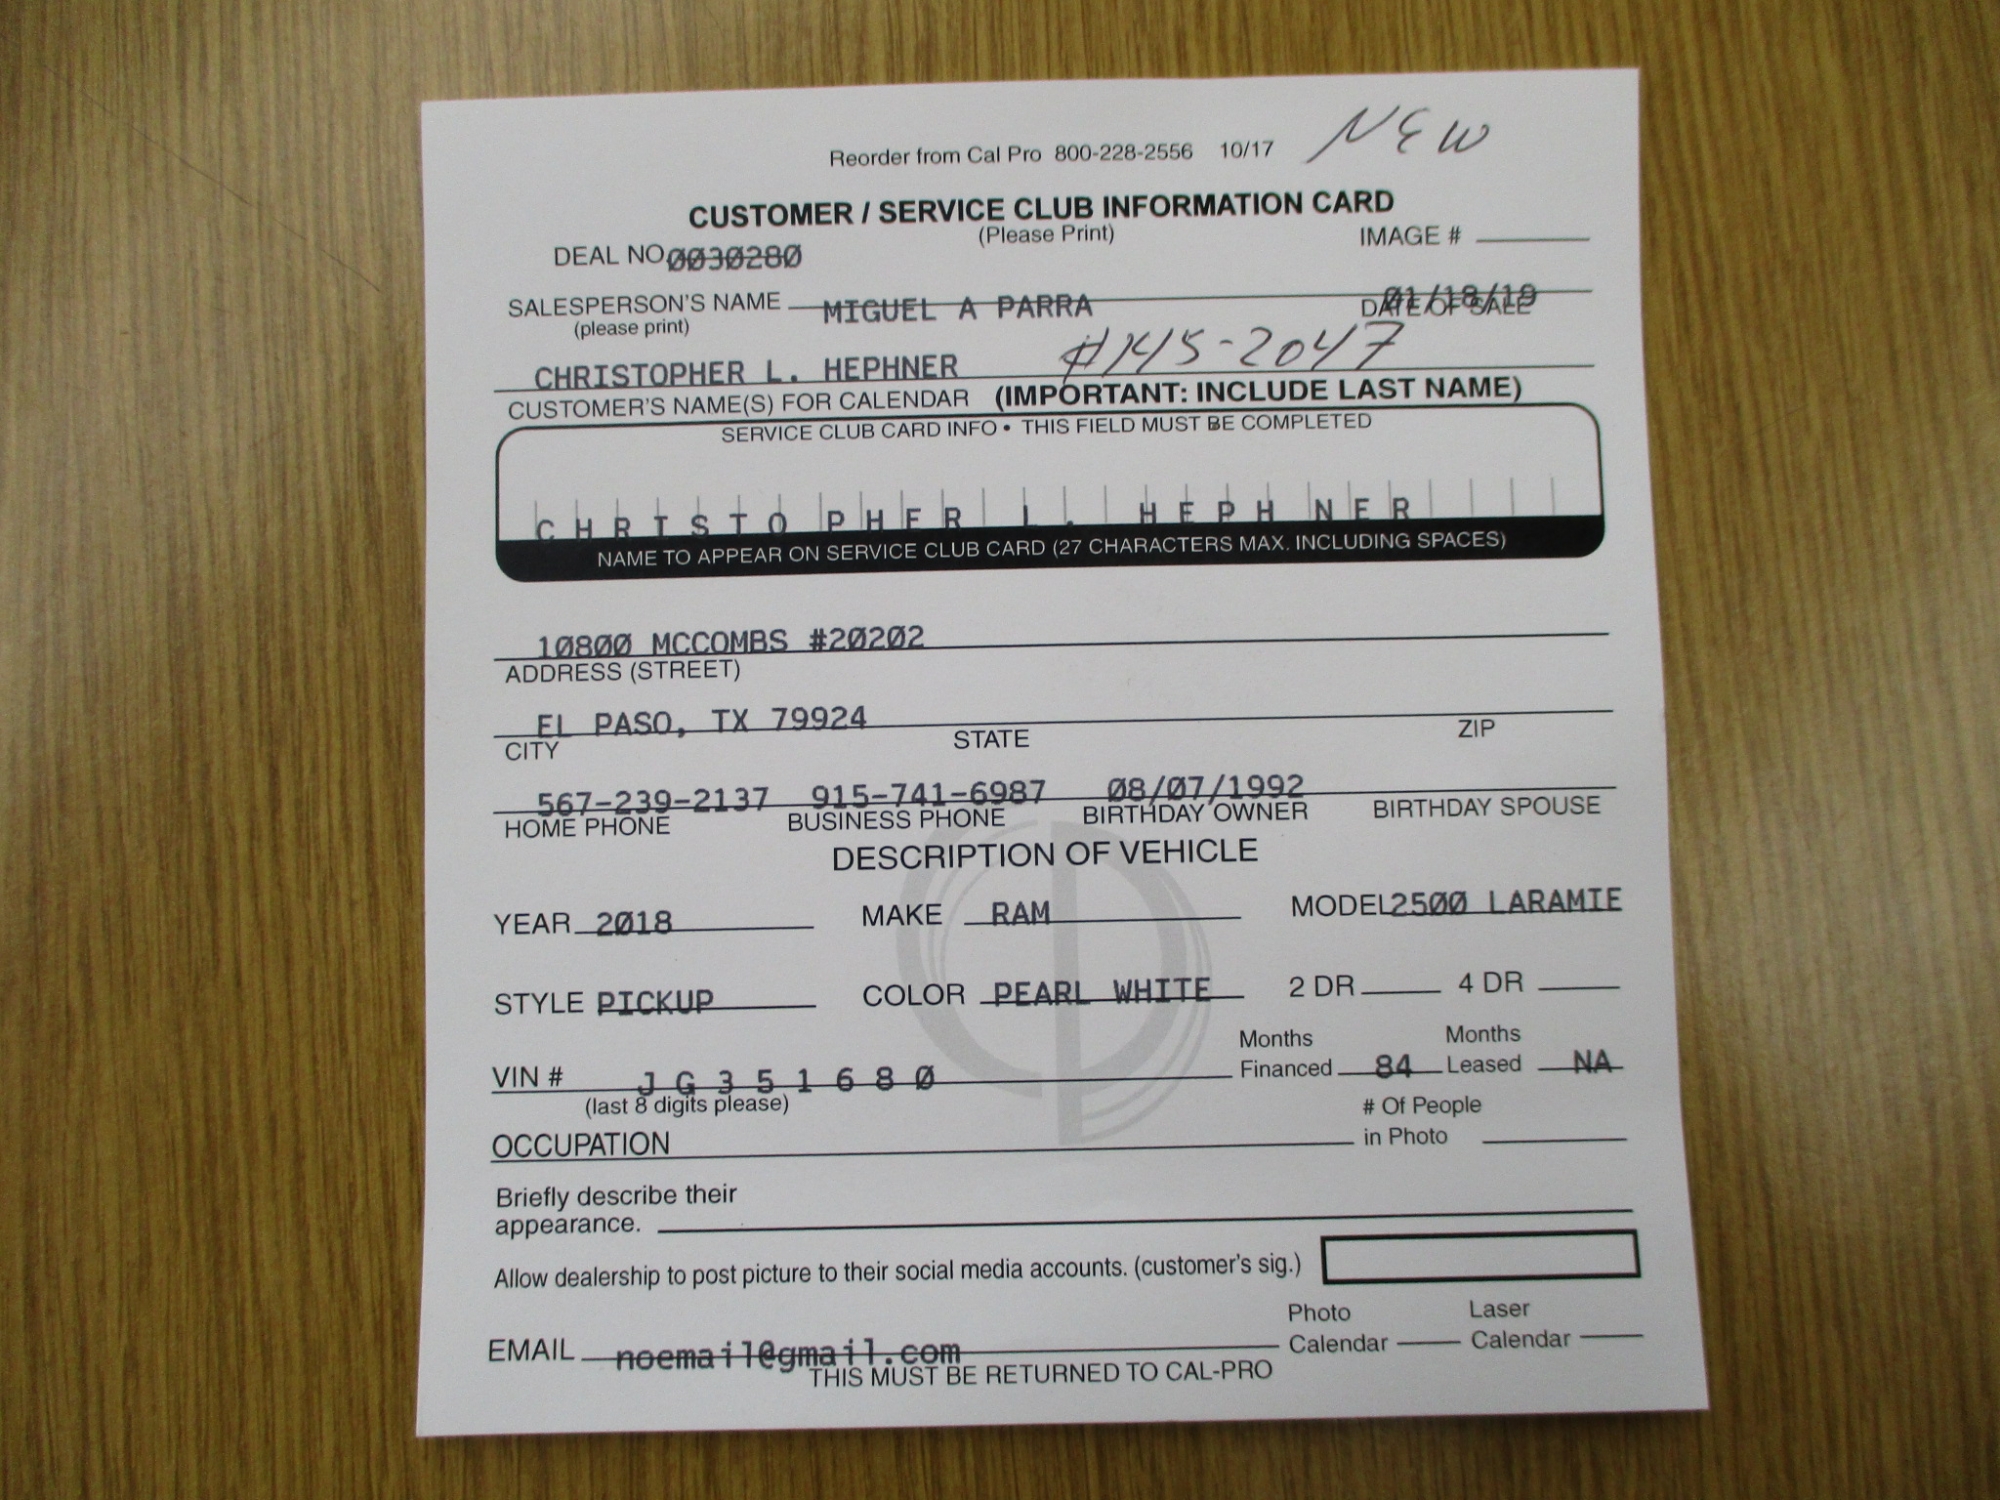 Reorder from Cal Pro 800-228-2556 10/17 NEW
CUSTOMER / SERVICE CLUB INFORMATION CARD
(Please Print)
DEAL NO 0030280 IMAGE #
SALESPERSON'S NAME MIGUEL A PARRA 01/18/19
(please print) DATE OF SALE
CHRISTOPHER L. HEPHNER #145-2047
CUSTOMER'S NAME(S) FOR CALENDAR (IMPORTANT: INCLUDE LAST NAME)
SERVICE CLUB CARD INFO • THIS FIELD MUST BE COMPLETED
CHRISTOPHER L. HEPHNER
NAME TO APPEAR ON SERVICE CLUB CARD (27 CHARACTERS MAX. INCLUDING SPACES)
10800 MCCOMBS #20202
ADDRESS (STREET)
EL PASO, TX 79924
CITY STATE ZIP
567-239-2137 915-741-6987 08/07/1992
HOME PHONE BUSINESS PHONE BIRTHDAY OWNER BIRTHDAY SPOUSE
DESCRIPTION OF VEHICLE
YEAR 2018 MAKE RAM MODEL 2500 LARAMIE
STYLE PICKUP COLOR PEARL WHITE 2 DR 4 DR
Months Months
VIN # JG351680 Financed 84 Leased NA
(last 8 digits please) # Of People
OCCUPATION in Photo
Briefly describe their
appearance.
Allow dealership to post picture to their social media accounts. (customer's sig.)
Photo Laser
EMAIL noemail@gmail.com Calendar Calendar
THIS MUST BE RETURNED TO CAL-PRO